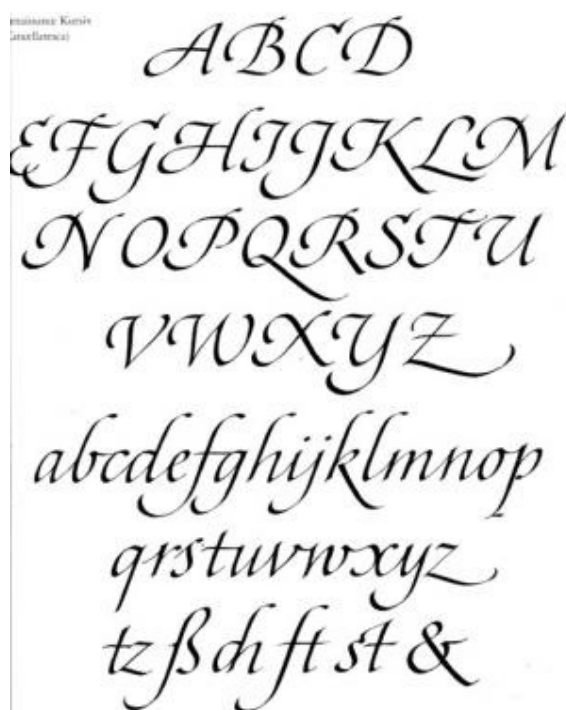 Renaissance Kursiv
A B C D
E F G H I J K L M
N O P Q R S T U
V W X Y Z
a b c d e f g h i j k l m n o p
q r s t u v w x y z
tz ß ch ft st &